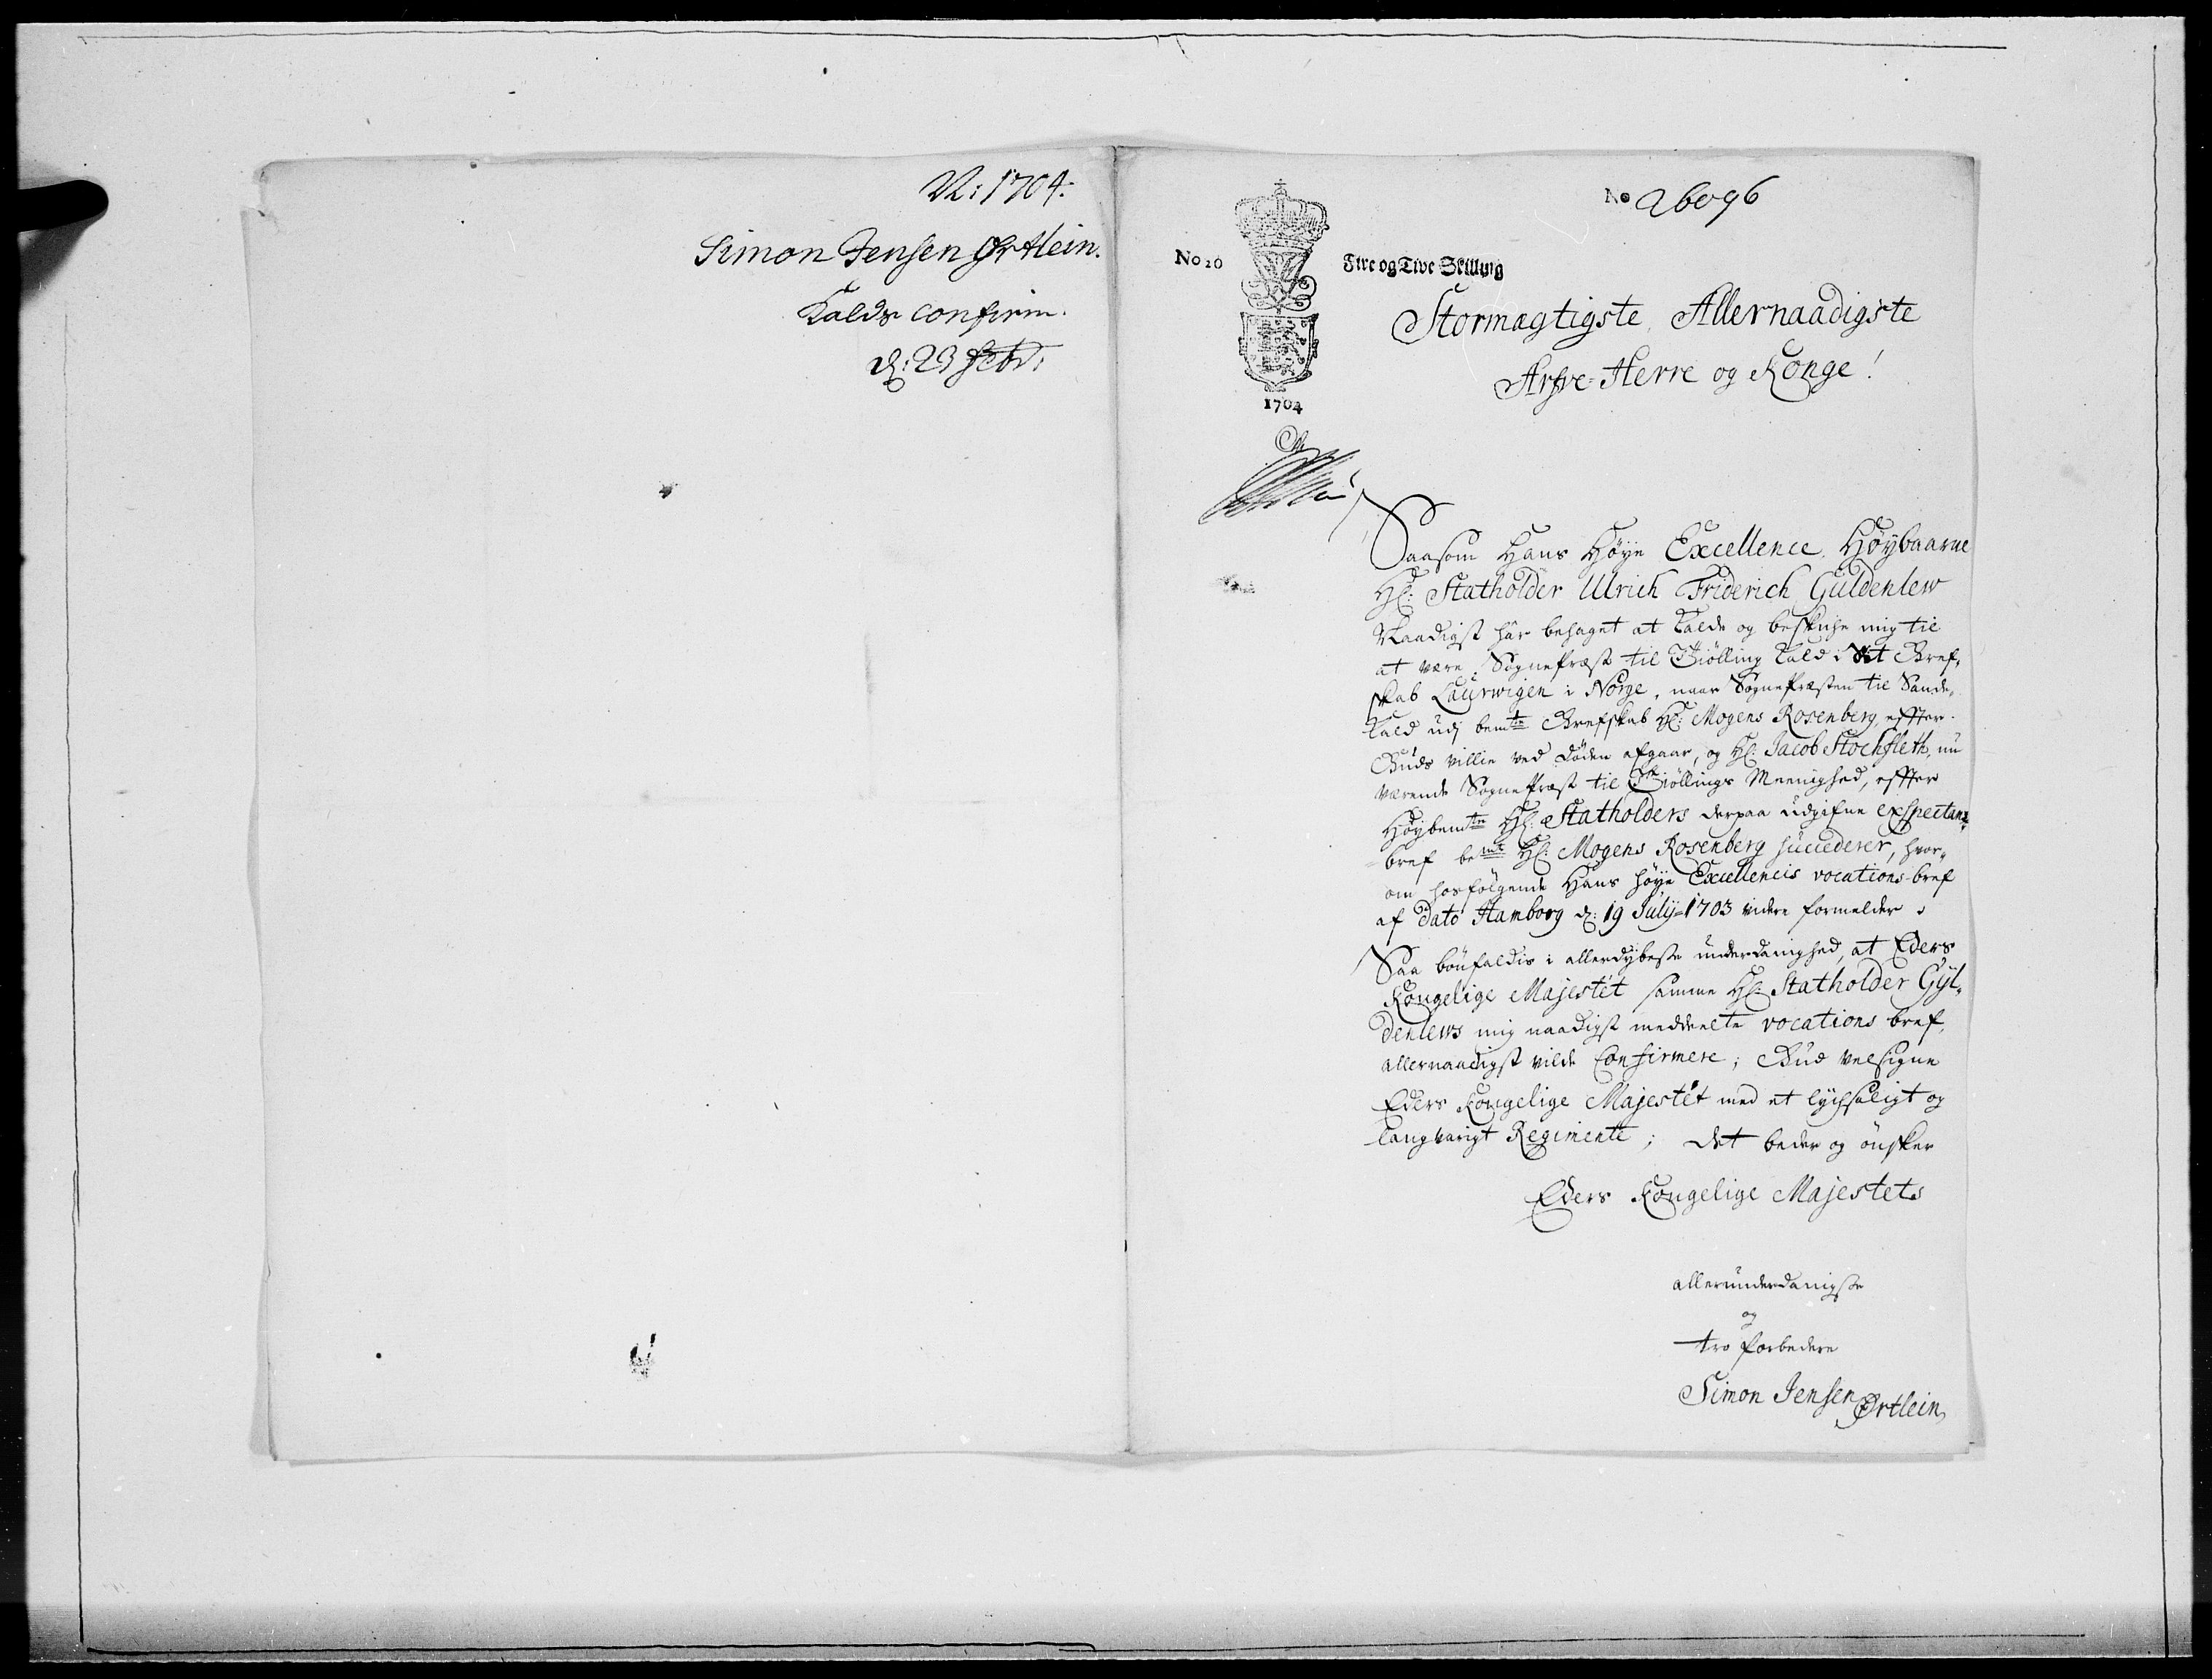 N: 1704:
Simon Jensen Ørtlein.
Kalds confirm.
d: 23 Febr:
No 26096
No 20
Fire og Tive Skilling
1704
Stormægtigste Allernaadigste
Arfve-Herre og Konge!
Saasom Hans Høye Excellence, Høybaarne
Hr: Statholder Ulrich Friderich Güldenlew
Naadigst har behaget at kalde og beskiche mig til
at være Sognepræst til Thiølling kald i det Gref-
skab Laurwigen i Norge, naar Sognepræsten til Sande-
kald udj bemte Grefskab Hr: Mogens Rosenberg, effter
Guds villie ved døden afgaar, og Hr: Jacob Stochfleth, nu
værende Sognepræst til Thiøllings Meenighed, effter
Høybemte Hr: Statholders derpaa udgifne exspectanz-
bref bemte Hr: Mogens Rosenberg succederer, hvor-
om hosfølgende Hans høye Excellencis vocations-bref
af Dato Hamborg d: 19 July 1703 videre formelder
Saa bønfaldis i allerdybeste underdanighed, at Eders
Kongelige Majestet samme Hr: Statholder Gyl-
denlews mig naadigst meddeelte vocations bref,
allernaadigst vilde Confirmere; Gud velsigne
Eders Kongelige Majestet med et lychsaligt og
langvarigt Regimente; det beder og ønsker
Eders Kongelige Majestets
allerunderdanigste
og
tro forbedere
Simon Jensen Ørtlein